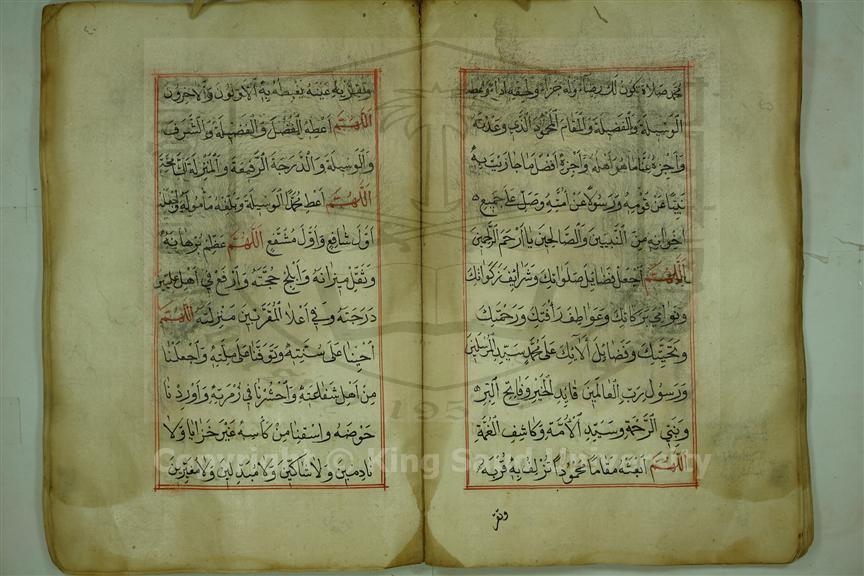 محمد صلاة تكون لك رضاء وله جزاء ولحقه اداء واعطه
الوسيلة والفضيلة والمقام المحمود الذي وعدته
واجزه عنا ما هو اهله واجزه افضل ما جازيت به
نبيا عن قومه ورسولا عن امته وصل على جميع
اخوانه من النبيين والصالحين يا ارحم الراحمين
اللهم اجعل فضائل صلواتك وشرائف زكواتك
ونوامي بركاتك وعواطف رأفتك ورحمتك
وتحيتك وفضائل آلائك على محمد سيد المرسلين
ورسول رب العالمين قائد الخير وفاتح البر
ونبي الرحمة وسيد الامة وكاشف الغمة
اللهم ابعثه مقاما محمودا تزلف به قربه
وتقر
وتقر به عينه يغبطه به الاولون والآخرون
اللهم اعطه الفضل والفضيلة والشرف
والوسيلة والدرجة الرفيعة والمنزلة الشامخة
اللهم اعط محمدا الوسيلة وبلغه مأموله واجعله
اول شافع واول مشفع اللهم عظم برهانه
وثقل ميزانه وابلج حجته وارفع في اهل عليين
درجته وفي اعلا المقربين منزلته اللهم
احينا على سنته وتوفنا على ملته واجعلنا
من اهل شفاعته واحشرنا في زمرته واوردنا
حوضه واسقنا من كاسه غير خزايا ولا
نادمين ولا شاكين ولا مبدلين ولا مغيرين
Copyright © King Saud University
195